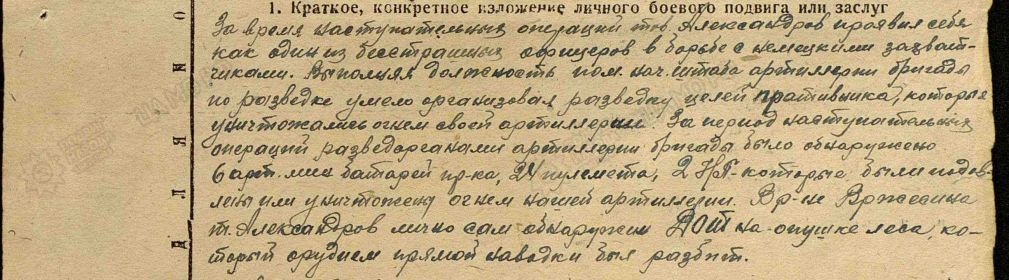 1. Краткое, конкретное изложение личного боевого подвига или заслуг
За время наступательных операций тов. Александров проявил себя
как один из бесстрашных офицеров в борьбе с немецкими захват-
чиками. Выполняя должность пом. нач. штаба артиллерии бригады
по разведке умело организовал разведку целей противника, которые
уничтожались огнем своей артиллерии. За период наступательных
операций разведорганами артиллерии бригады было обнаружено
6 арт. мин батарей пр-ка, 24 пулемета, 2 НП - которые были подав-
лены или уничтожены огнем нашей артиллерии. В р-не
т. Александров лично сам обнаружил ДОТ на опушке леса, ко-
торый орудием прямой наводки был разбит.